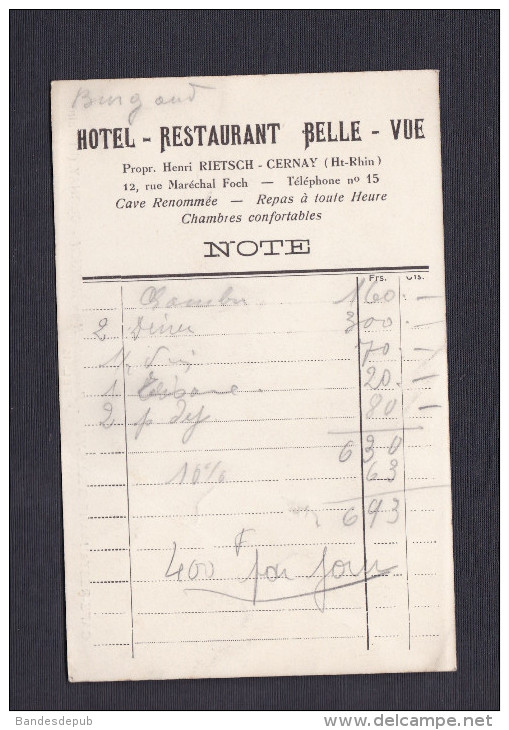 Burgaud
HOTEL - RESTAURANT BELLE - VUE
Propr. Henri RIETSCH - CERNAY (Ht-Rhin)
12, rue Maréchal Foch — Téléphone nº 15
Cave Renommée — Repas à toute Heure
Chambres confortables
NOTE
Frs. Cts.
Chambre 160.—
2 Diner 300.—
1/2 Vin 70.—
1 Tisane. 20.—
2 p dej 80.—
630
10% 63
693
400 F par jour
Bandesdepub
www.delcampe.net